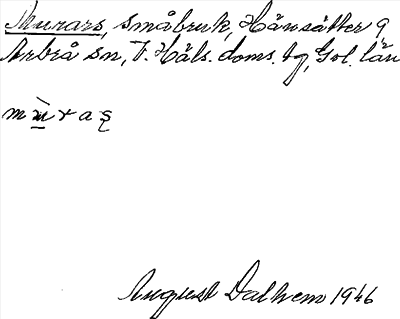 Murars, småbruk, Hänsätter 9
Arbrå sn, V. Häls. doms. tg, Gvl. län
August Dalhem 1946